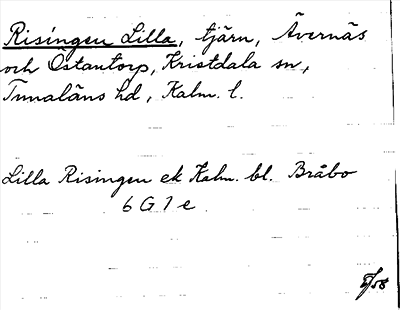 Risingen Lilla, tjärn, Övernäs
och Östantorp, Kristdala sn,
Tunaläns hd, Kalm. l.
Lilla Risingen ek Kalm. bl. Bråbo
6 G 1 e